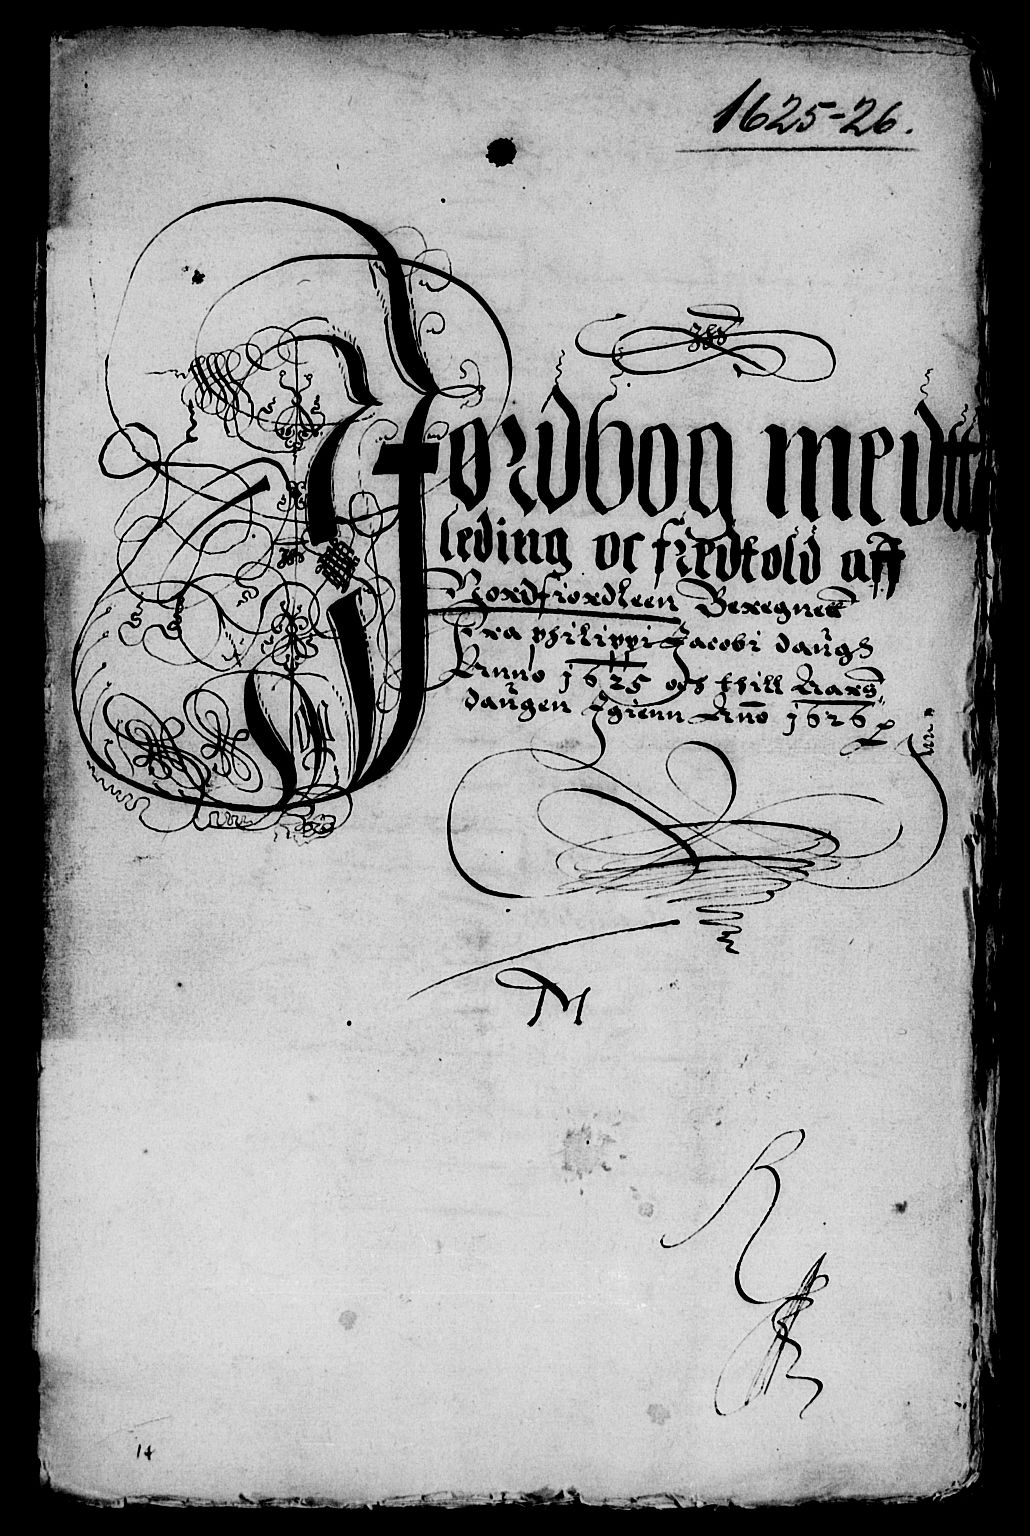 1625-26.
Jordbog medtt
leding oc fredtold aff
Nordfiordleen Beregnett
fra philippi Jacobi daugh
Anno 1625 och thill Aars
daugen Jgienn Anno 1626
R
14